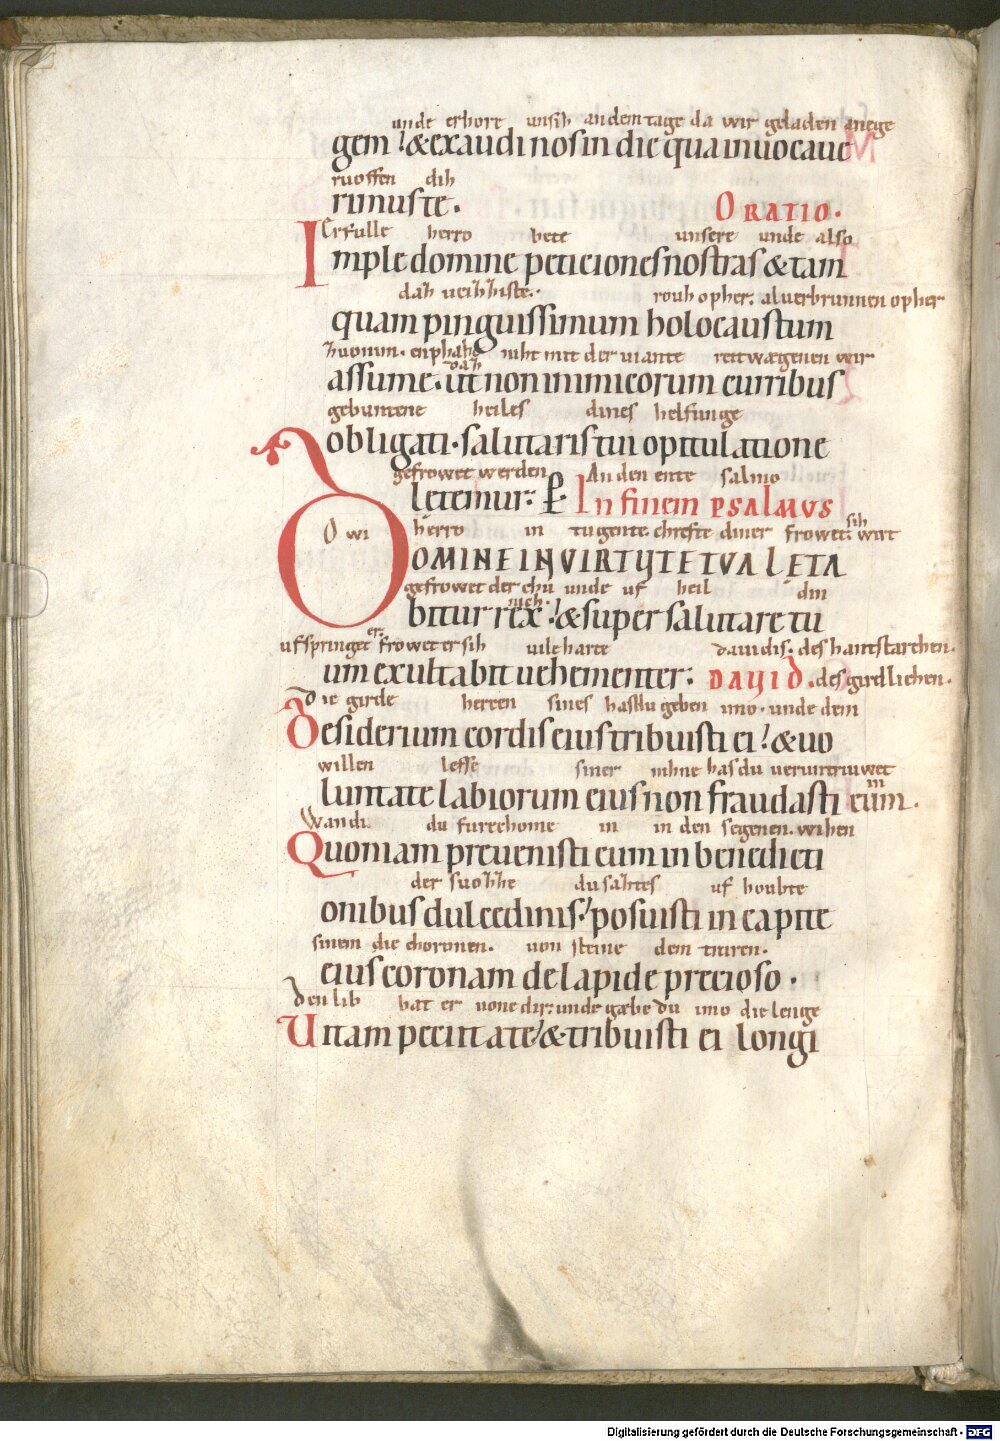 unde erhort unsih an dem tage da wir geladen anege
gem !&exaudi nos in die qua inuocaue
ruoffen dih
rimus te. ORATIO.
Erfulle herro bete unsere unde also
Imple domine peticiones nostras & tam
rouh opher: al uerbrunnen opher
quam pinguissimum holocaustum
niht mit der uiante reitwægenen wir
assume. ut non inimicorum curribus
gebuntene heiles dines helfunge
obligati. salutaris tui opitulatione
gefrowet werden An den ente salmo
letemur: In finem PSALMUS
O wi herro in tugente dîner frowet sih
DOMINE IN VIRTUTE TUA LETA
gefrowet der unde uf heil din
bitur rex !& super salutare tu
ufspringet er frowet er sih uile harte dauidis. des hantstarchen.
um exultabit uehementer: DAUID. des girdlichen.
Die girde herzen sines hastu geben imo. unde dem
Desiderium cordis eius tribuisti ei !& uo
willen lesse siner nihne hasdu
luntate labiorum eius non fraudasti eum.
Wandi du furechome in in den segenen. wihen
Quoniam preuenisti eum in benedicti
der suozze du saztes uf houbte
onibus dulcedinis! posuisti in capite
sinem die choronen. uon steine dem tiuren.
eius coronam de lapide precioso.
Den lib bat er uone dir: unde gæbe du imo die lenge
Uitam peciit a te !& tribuisti ei longi
Digitalisierung gefördert durch die Deutsche Forschungsgemeinschaft - DFG